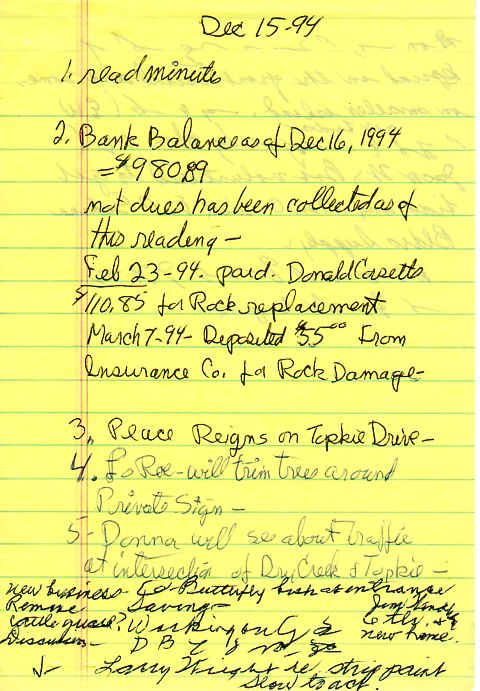 Dec 15-94
1. read minutes
2. Bank Balance as of Dec 16, 1994
= $980.89
not dues has been collected as of
this reading -
Feb 23-94. paid. Donald Casetts
$110.85 for Rock replacement
March 7-94 - Deposited $55.00 From
Insurance Co. for Rock Damage -
3. Peace Reigns on Topkie Drive -
4. LaRoe - will trim trees around
Private Sign -
5 - Donna will see about traffic
at intersection of Dry Creek & Topkie -
new business - Butterfly bush at entrance
Remove Saving - Jim
cattle guard? Working on
Discussion - new home.
Larry Wright re strip paint
Slow to act.